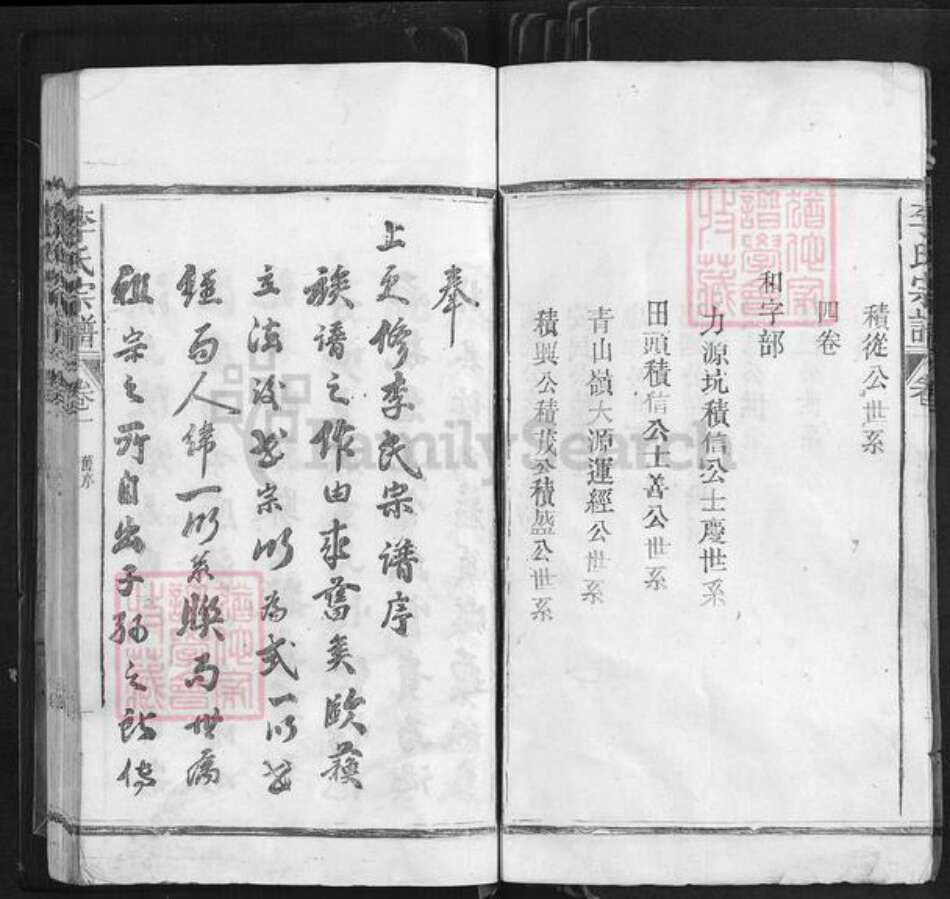 李氏宗譜
卷一
積從公世系
四卷
和字部
力源坑積信公士慶世系
田頭積信公士善公世系
青山嶺大源運經公世系
積興公積茂公積盛公世系
奉
上更修李氏宗譜序
族譜之作由來舊矣歐蘇
立法後世宗以為式一以世
經而人緯一以系聯而世
祖宗之所自出子孫之
李氏宗譜
卷一
舊序
譜學會
收藏
譜學會
收藏
FamilySearch